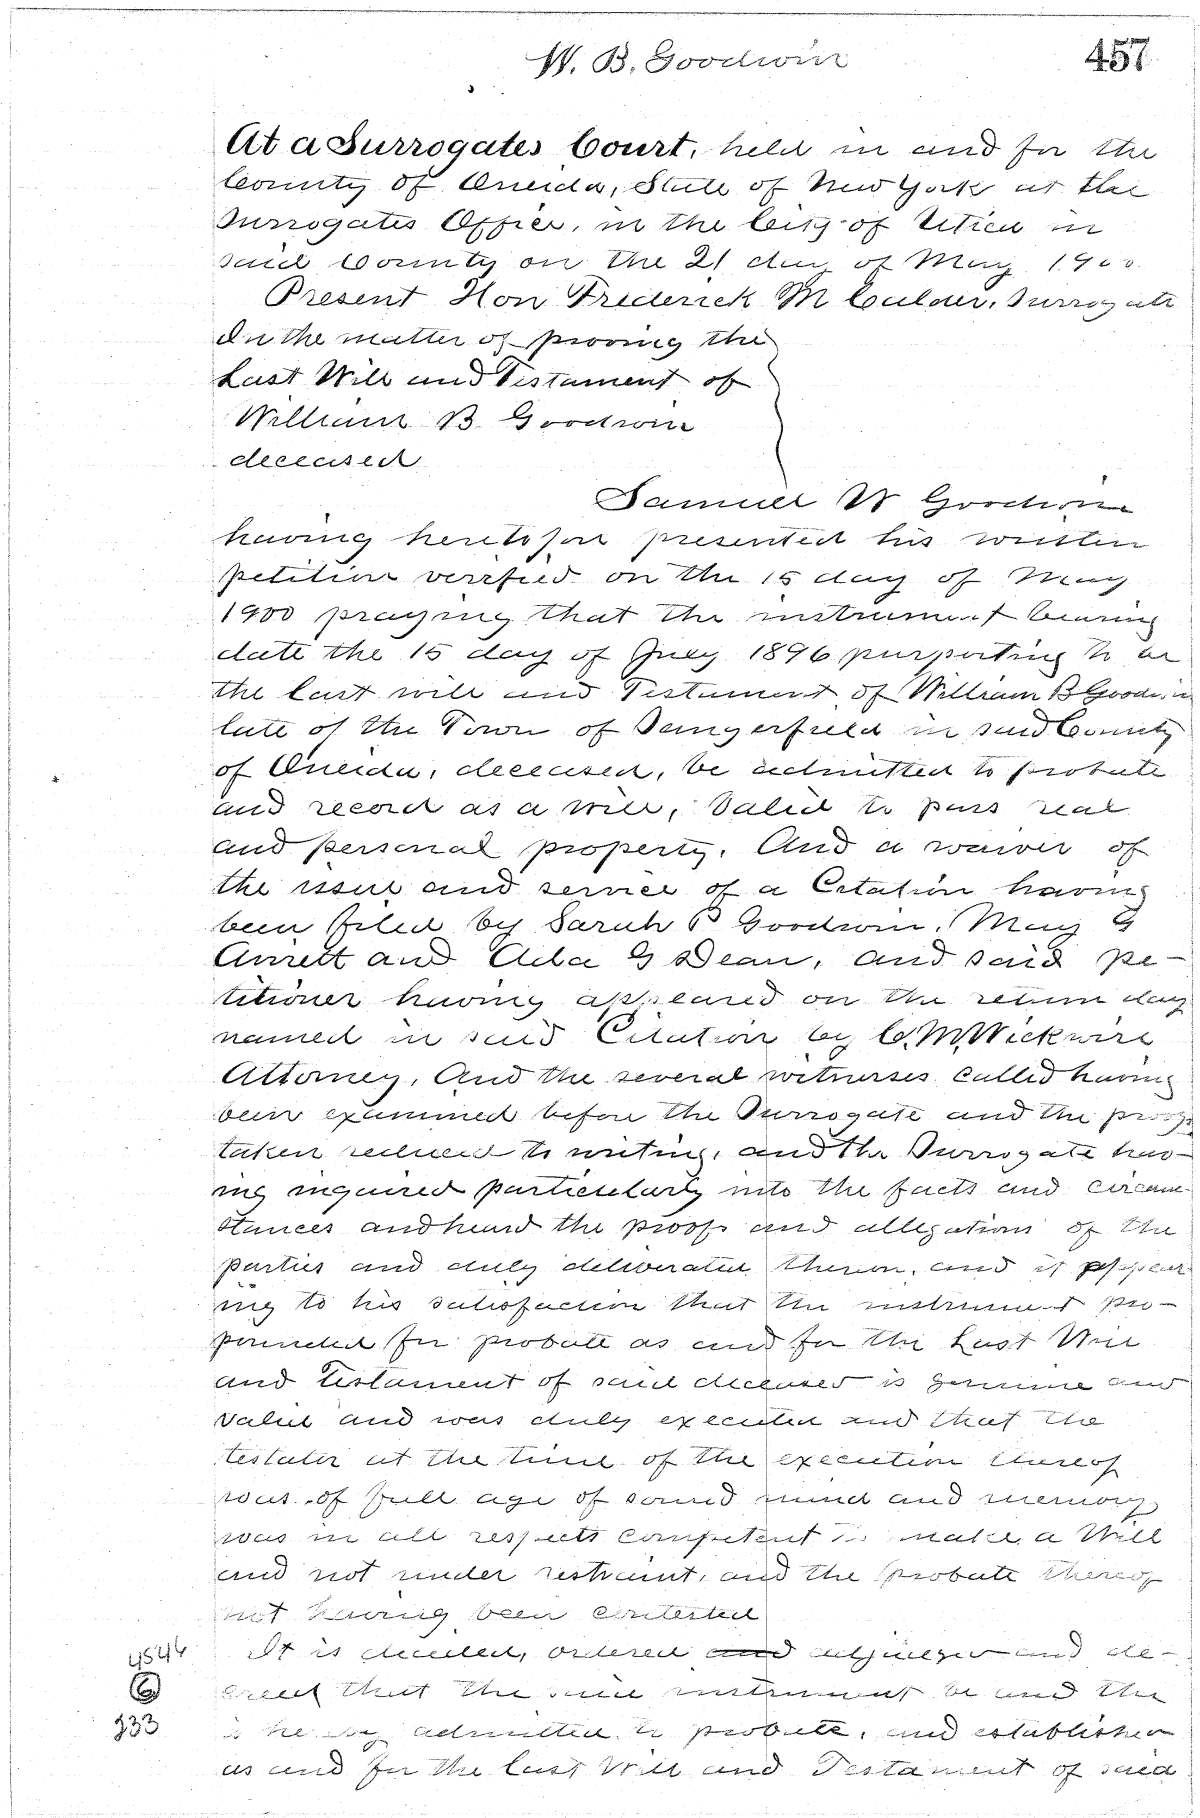 W. B. Goodwin
457
At a Surrogates Court, held in and for the
County of Oneida, State of New York at the
Surrogates Office, in the City of Utica in
said County on the 21 day of May 1900
Present Hon Frederick M Calder, Surrogate
In the matter of proving the
Last Will and Testament of
William B Goodwin
deceased
Samuel W Goodwin
having heretofore presented his written
petition verified on the 15 day of May
1900 praying that the instrument bearing
date the 15 day of July 1896 purporting to be
the last will and Testament of William B Goodwin
late of the Town of Sangerfield in said County
of Oneida, deceased, be admitted to probate
and record as a will, Valid to pass real
and personal property. And a waiver of
the issue and service of a Citation having
been filed by Sarah P Goodwin, May G
and Ada G Dean, and said pe-
titioner having appeared on the return day
named in said Citation by C. M. Wickwire
Attorney, And the several witnesses called having
been examined before the Surrogate and the proofs
taken reduced to writing, and the Surrogate hav-
ing inquired particularly into the facts and circum-
stances and heard the proofs and allegations of the
parties and duly deliberated thereon, and it appear
ing to his satisfaction that the instrument pro-
pounded for probate as and for the Last Will
and Testament of said deceased is genuine and
valid and was duly executed and that the
testator at the time of the execution thereof
was of full age of sound mind and memory,
was in all respects competent to make a Will
and not under restraint, and the probate thereof
not having been contested
It is decided, ordered and adjudged and de-
creed that the said instrument be and the
is hereby admitted to probate, and established
as and for the last Will and Testament of said
4546
6
233